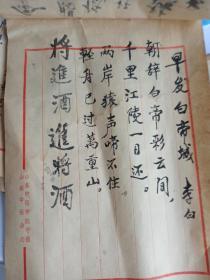 早发白帝城
李白
朝辞白帝彩云间，
千里江陵一日还。
两岸猿声啼不住
轻舟已过万重山。
將進酒 進將酒